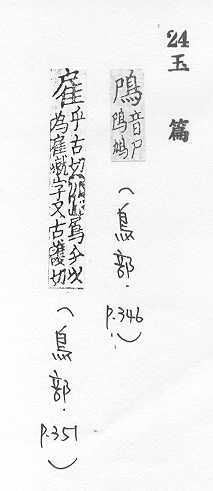 24
玉篇
鳲音尸鳲鳩
(鳥部. p.346)
雇乎古切鳸今以
為雇僦字又古護切
(鳥部. p.351)